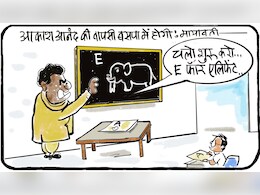 आकाश आनंद की वापसी बसपा में होगी : मायावती
E
चलो शुरू करो...
E फॉर एलिफेंट..